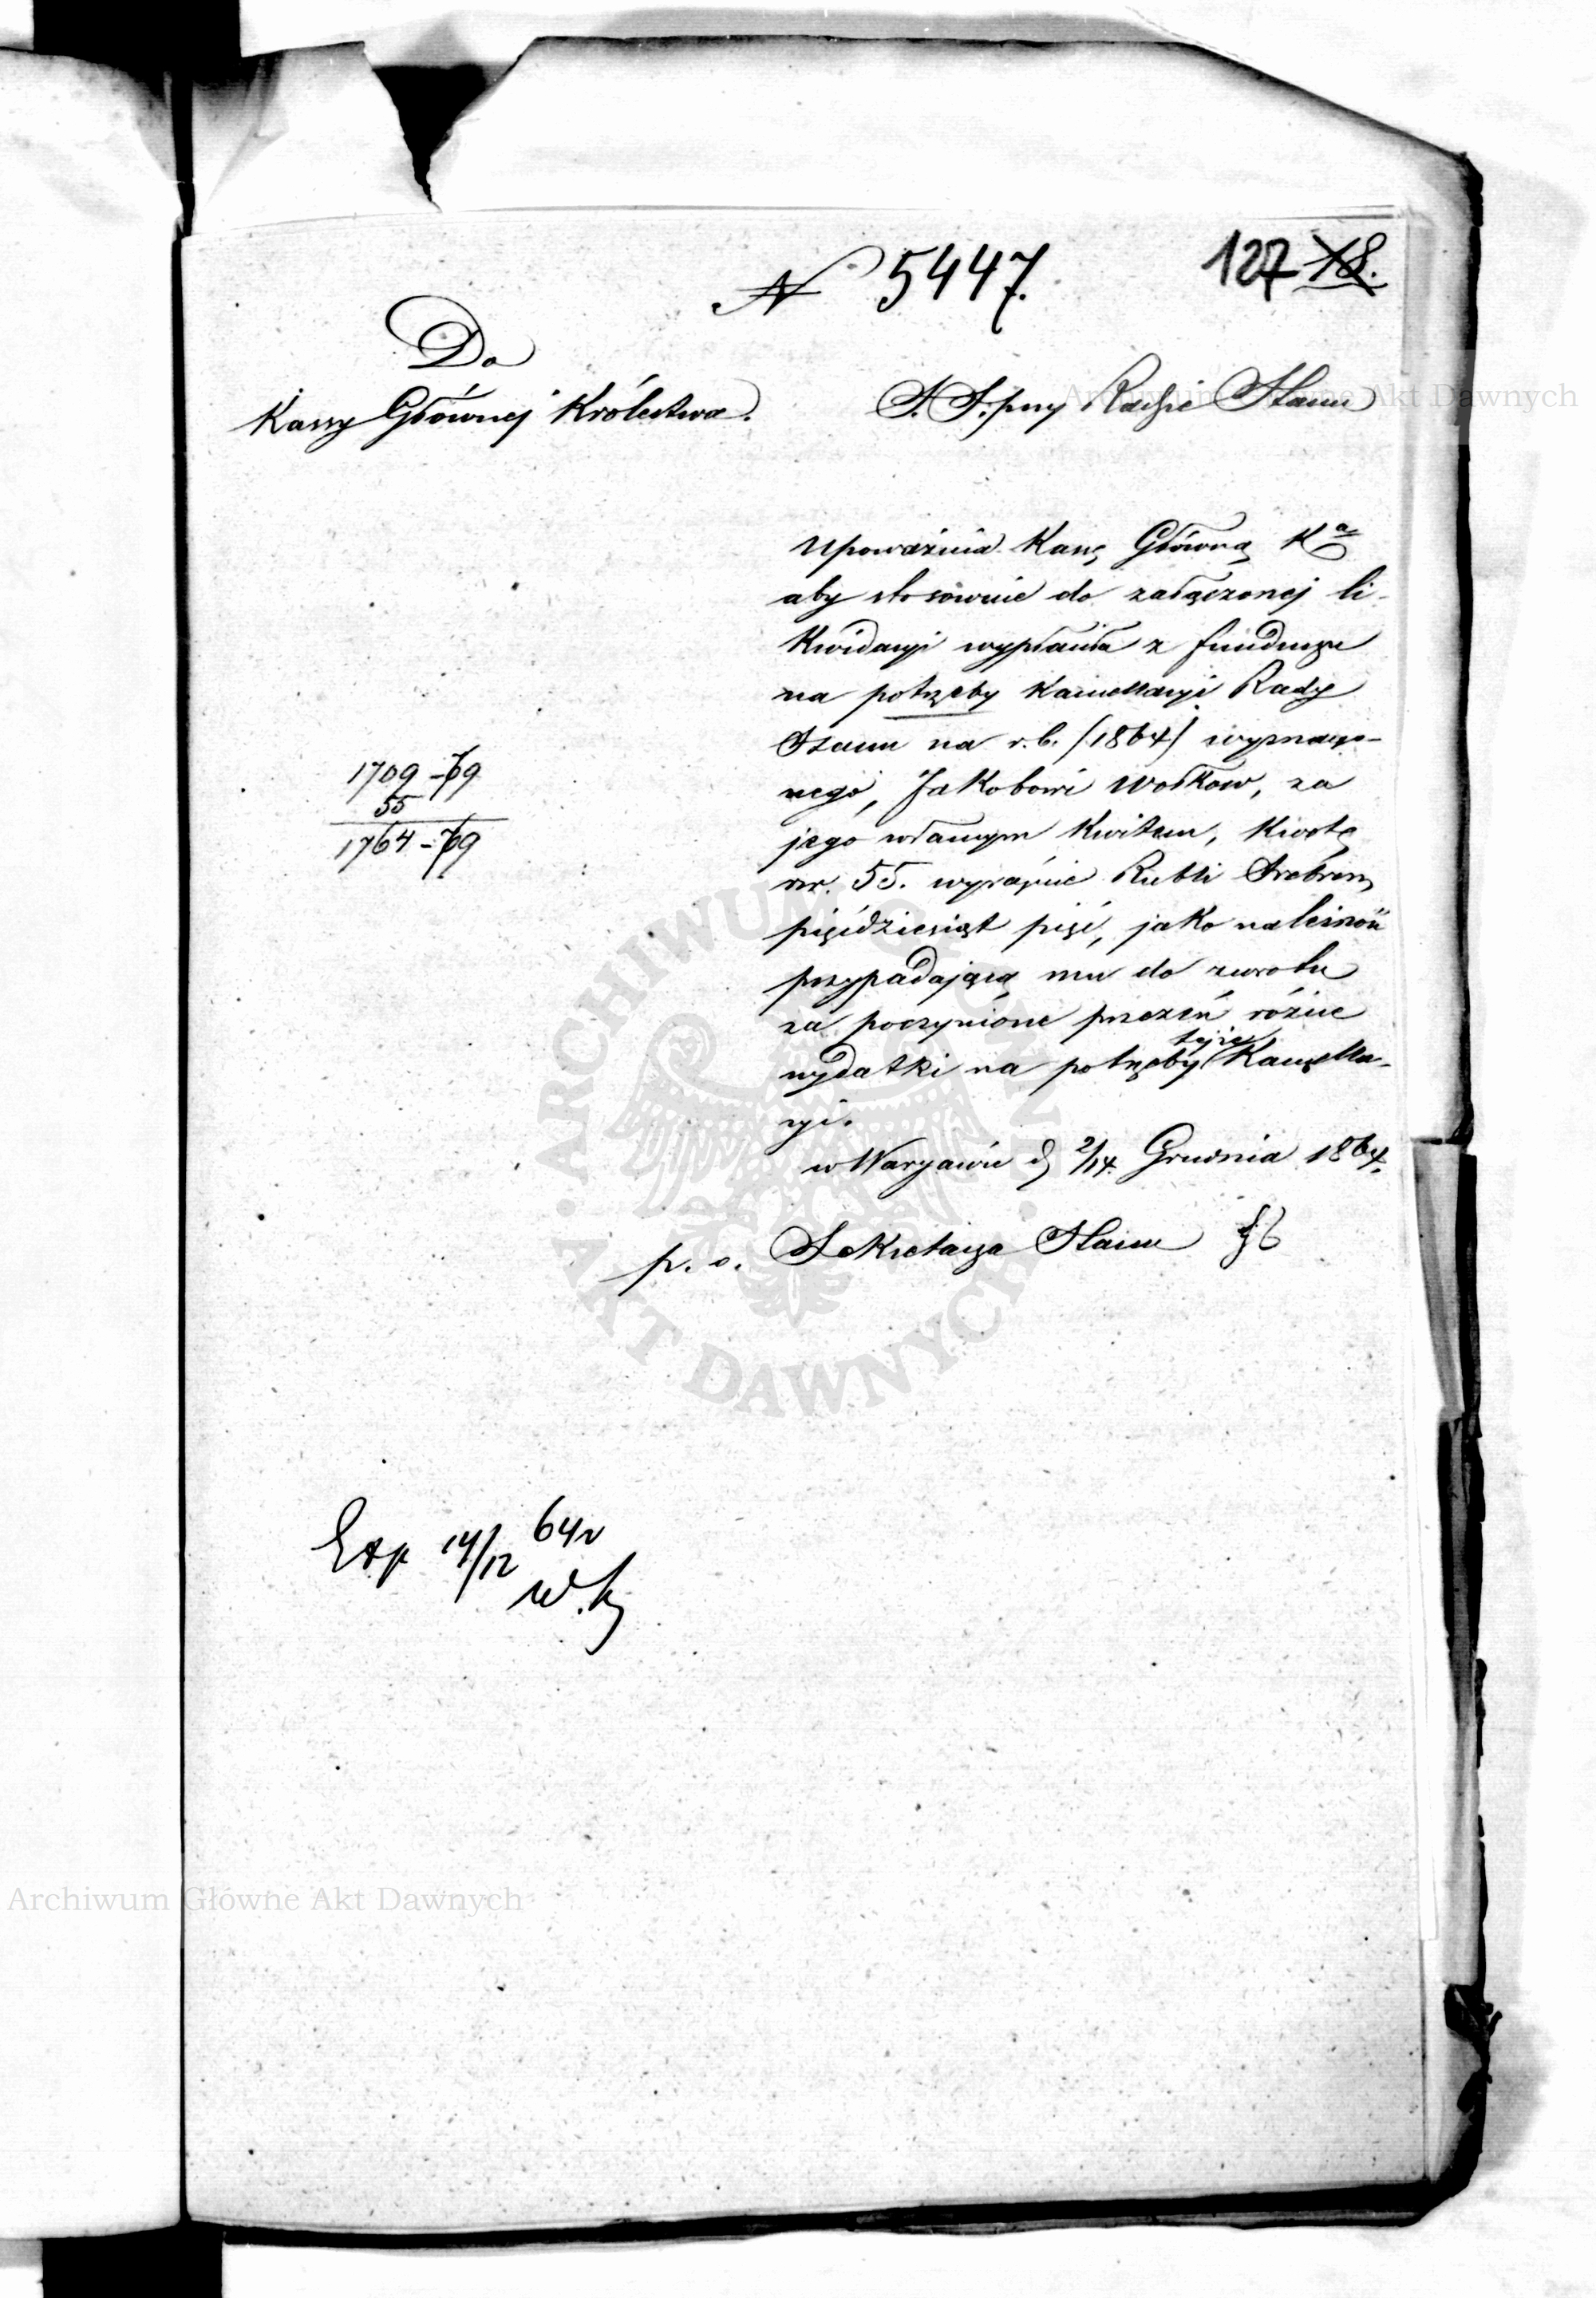 N 5447.
127 18.
Do
Kassy Głównej Królestwa.
S. S. przy Radzie Stanu
Upoważnia Kassę Główną Kª
aby stosownie do załączonej li-
kwidacyi wypłaciła z funduszu
na potrzeby Kancellaryi Rady
Stanu na r.b. /1864/ wyznaczo-
nego, Jakobowi Wołkow, za
jego własnym kwitem, kwotę
rsr. 55. wyraźnie Rubli Srebrem
pięćdziesiąt pięć, jako należność
przypadającą mu do zwrotu
za poczynione przezeń różne
wydatki na potrzeby tejże Kancella-
ryi.
1709 - 79
55
1764 - 79
w Warszawie d. 2/14 Grudnia 1864.
p. o. Sekretarza Stanu
Exp 14/12 64 r
Archiwum Główne Akt Dawnych
ARCHIWUM GŁÓWNE AKT DAWNYCH
Archiwum Główne Akt Dawnych